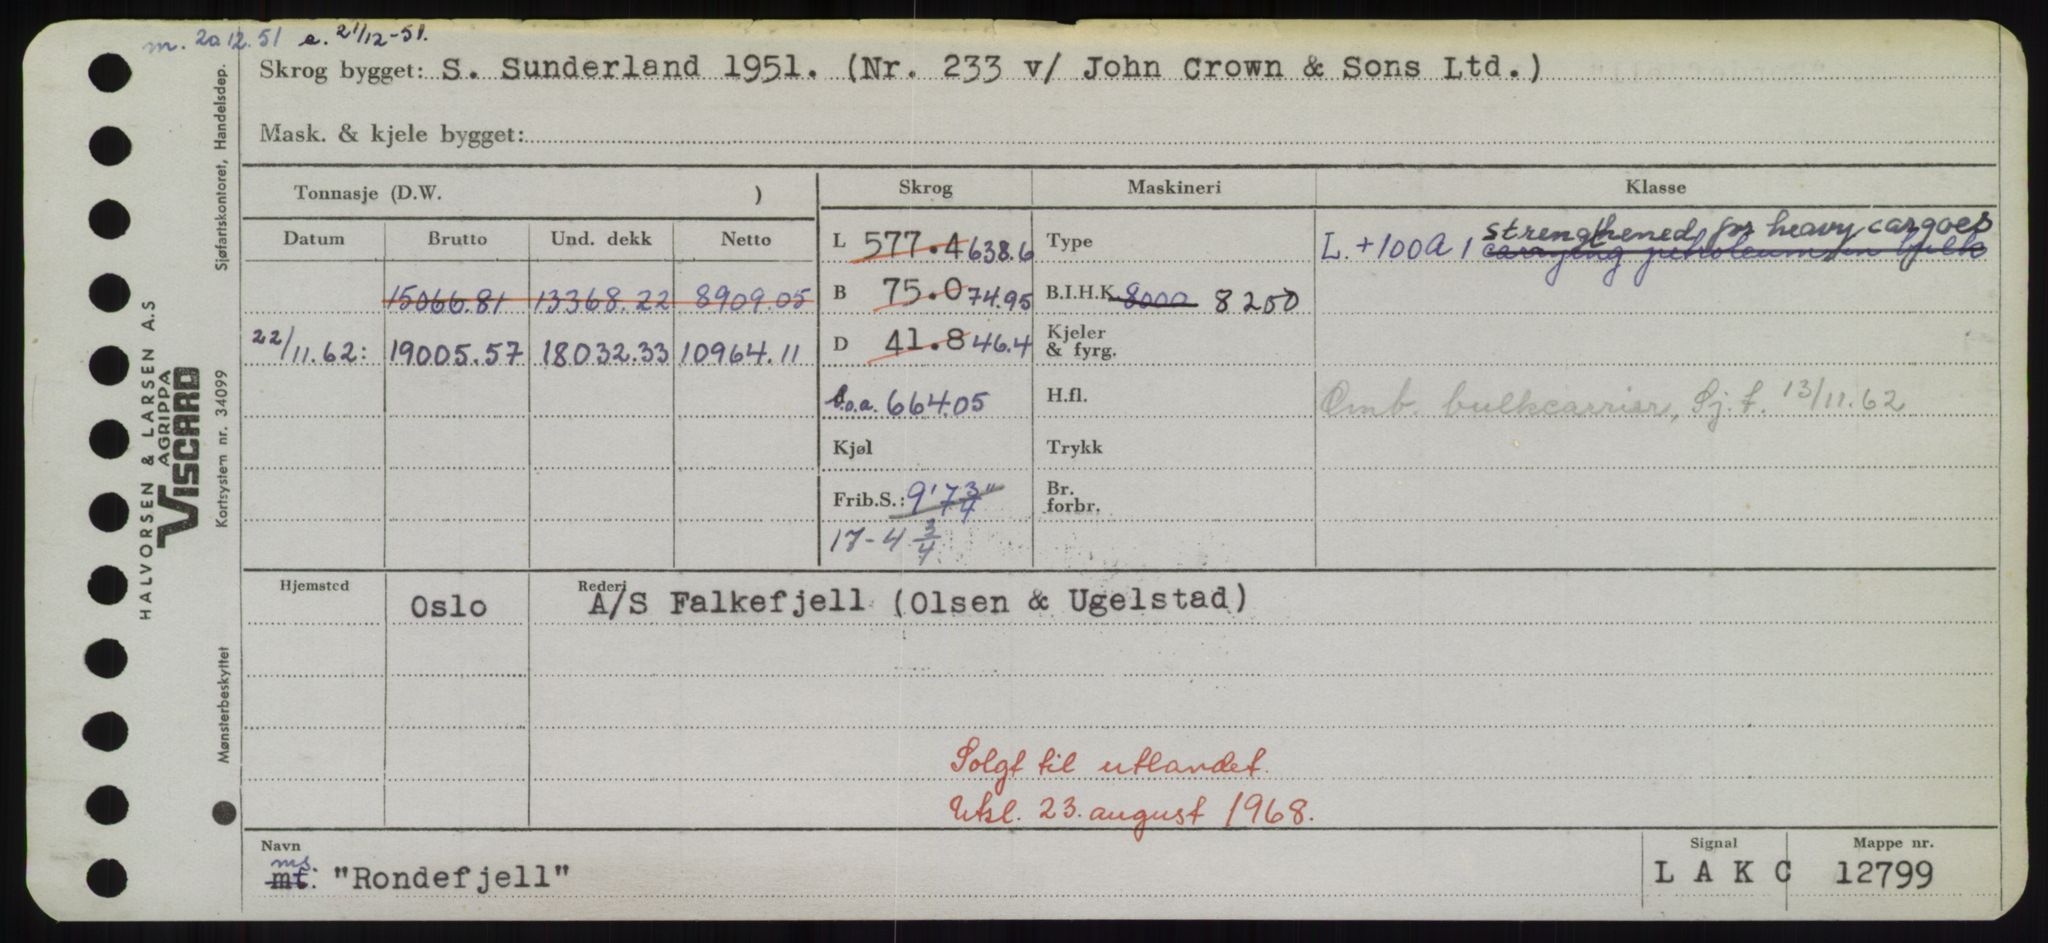 m. 20 12.51 e. 21/12-51.
Skrog bygget: S. Sunderland 1951. (Nr. 233 v/ John Crown & Sons Ltd.)
Mask. & kjele bygget:
Tonnasje (D.W. )
Skrog
Maskineri
Klasse
Datum Brutto Und. dekk Netto
L 577.4 638.6
Type
strengthened for heavy cargoes
L. +100A 1 carrying petroleum in bulk
15066.81 13368.22 8909.05
B 75.0 74.95
B.I.H.K. 8000 8250
22/11.62: 19005.57 18032.33 10964.11
D 41.8 46.4
Kjeler
& fyrg.
l.o.a. 664.05
H.fl.
Omb. bulkcarrier, Sj.f. 13/11.62
Kjøl
Trykk
Frib.S.: 9'7 3/4"
Br.
forbr.
17-4 3/4
Hjemsted Rederi
Oslo A/S Falkefjell (Olsen & Ugelstad)
Solgt til utlandet.
Utsl. 23. august 1968.
Navn Signal Mappe nr.
ms.
mt. "Rondefjell" L A K C 12799
HALVORSEN & LARSEN A.S
AGRIPPA
VISCARD
Mønsterbeskyttet Kortsystem nr. 34099 Sjøfartskontoret, Handelsdep.